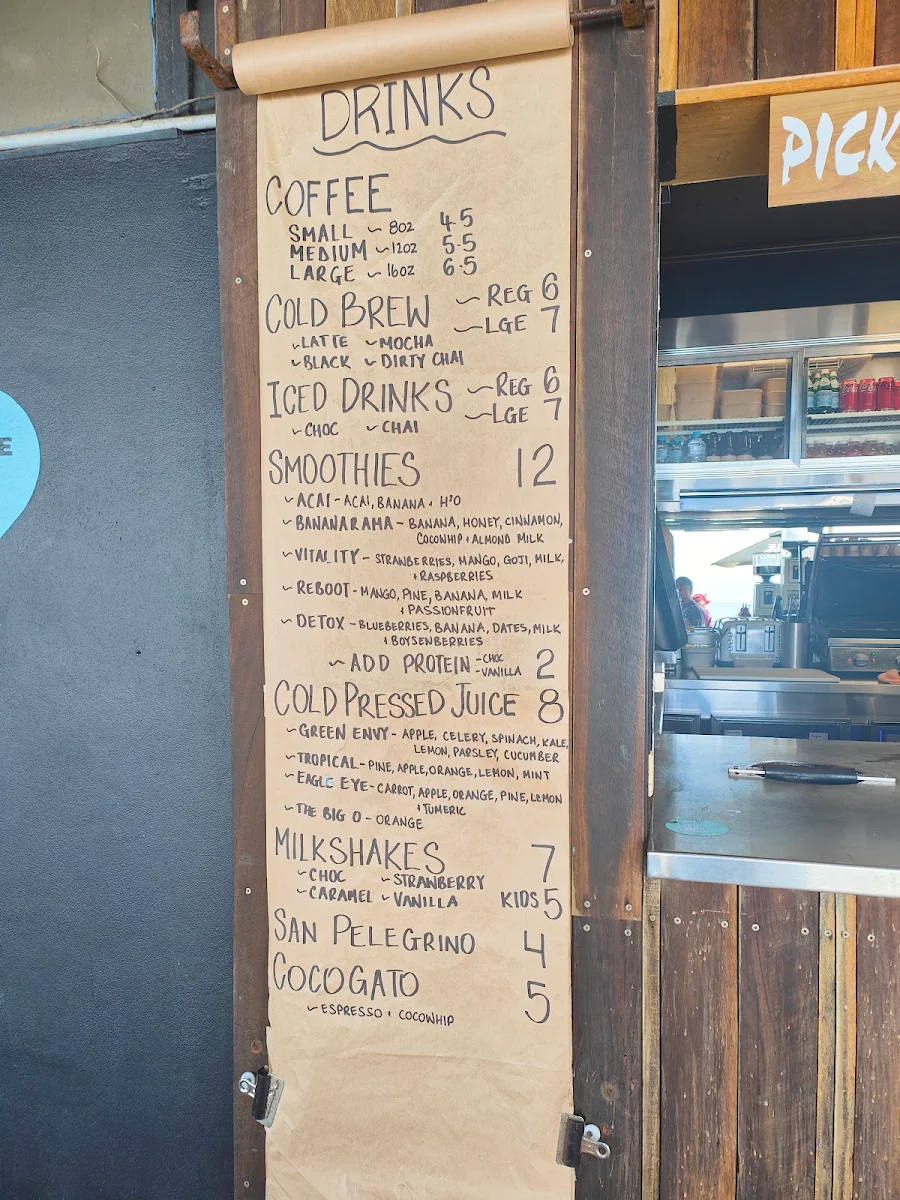 DRINKS
COFFEE
SMALL ~ 8oz 4.5
MEDIUM ~ 12oz 5.5
LARGE ~ 16oz 6.5
COLD BREW ~ REG 6
~ LGE 7
~ LATTE ~ MOCHA
~ BLACK ~ DIRTY CHAI
ICED DRINKS ~ REG 6
~ LGE 7
~ CHOC ~ CHAI
SMOOTHIES 12
~ ACAI ~ ACAI, BANANA + H²O
~ BANANARAMA - BANANA, HONEY, CINNAMON,
COCOWHIP + ALMOND MILK
~ VITALITY - STRAWBERRIES, MANGO, GOJI, MILK,
+ RASPBERRIES
~ REBOOT - MANGO, PINE, BANANA, MILK
+ PASSIONFRUIT
~ DETOX - BLUEBERRIES, BANANA, DATES, MILK
+ BOYSENBERRIES
~ ADD PROTEIN - CHOC
- VANILLA 2
COLD PRESSED JUICE 8
~ GREEN ENVY - APPLE, CELERY, SPINACH, KALE,
LEMON, PARSLEY, CUCUMBER
~ TROPICAL - PINE, APPLE, ORANGE, LEMON, MINT
~ EAGLE EYE - CARROT, APPLE, ORANGE, PINE, LEMON
+ TUMERIC
~ THE BIG O - ORANGE
MILKSHAKES 7
~ CHOC ~ STRAWBERRY
~ CARAMEL ~ VANILLA KIDS 5
SAN PELEGRINO 4
COCOGATO 5
~ ESPRESSO + COCOWHIP
PICK